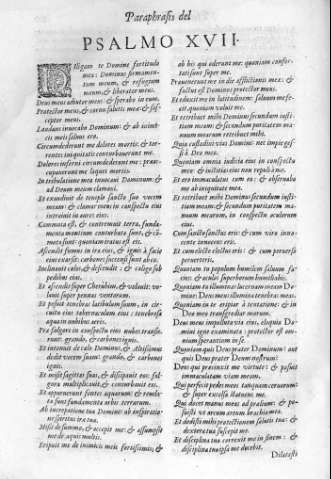 Paraphrasis del
PSALMO XVII.
DIligam te Domine fortitudo
mea: Dominus firmamen-
tum meum, & refugium
meum, & liberator meus.
Deus meus adiutor meus: & sperabo in eum.
Protector meus, & cornu salutis meæ: & sus-
ceptor meus.
Laudans inuocabo Dominum: & ab inimi-
cis meis saluus ero.
Circumdederunt me dolores mortis: & tor-
rentes iniquitatis conturbauerunt me.
Dolores inferni circumdederunt me: præoc-
cupauerunt me laquei mortis.
In tribulatione mea inuocaui Dominum: &
ad Deum meum clamaui.
Et exaudiuit de templo sancto suo vocem
meam: & clamor meus in conspectu eius
introiuit in aures eius.
Commota est, & contremuit terra, funda-
menta montium conturbata sunt, & com-
mota sunt: quoniam iratus est eis.
Ascendit fumus in ira eius, & ignis à facie
eius exarsit: carbones succensi sunt ab eo.
Inclinauit cœlos, & descendit: & caligo sub
pedibus eius.
Et ascendit super Cherubim, & volauit: vo-
lauit super pennas ventorum.
Et posuit tenebras latibulum suum, in cir-
cuitu eius tabernaculum eius: tenebrosa
aqua in nubibus aeris.
Præ fulgore in conspectu eius nubes transie-
runt: grando, & carbones ignis.
Et intonuit de cœlo Dominus, & Altissimus
dedit vocem suam: grando, & carbones
ignis.
Et misit sagittas suas, & dissipauit eos: ful-
gura multiplicauit, & conturbauit eos.
Et apparuerunt fontes aquarum: & reuela-
ta sunt fundamenta orbis terrarum.
Ab increpatione tua Domine: ab inspiratio-
ne spiritus iræ tuæ.
Misit de summo, & accepit me: & assumpsit
me de aquis multis.
Eripuit me de inimicis meis fortissimis: &
ab his qui oderunt me: quoniam confor-
tati sunt super me.
Præuenerunt me in die afflictionis meæ: &
factus est Dominus protector meus.
Et eduxit me in latitudinem: saluum me fe-
cit, quoniam voluit me.
Et retribuet mihi Dominus secundum iusti-
tiam meam: & secundum puritatem ma-
nuum mearum retribuet mihi.
Quia custodiui vias Domini: nec impiè ges-
si à Deo meo.
Quoniam omnia iudicia eius in conspectu
meo: & iustitias eius non repuli à me.
Et ero immaculatus cum eo: & obseruabo
me ab iniquitate mea.
Et retribuet mihi Dominus secundum iusti-
tiam meam: & secundum puritatem ma-
nuum mearum, in conspectu oculorum
eius.
Cum sancto sanctus eris: & cum viro inno-
cente innocens eris.
Et cum electo electus eris: & cum peruerso
peruerteris.
Quoniam tu populum humilem saluum fa-
cies: & oculos superborum humiliabis.
Quoniam tu illuminas lucernam meam Do-
mine: Deus meus illumina tenebras meas.
Quoniam in te eripiar à tentatione: & in
Deo meo transgrediar murum.
Deus meus impolluta via eius, eloquia Do-
mini igne examinata: protector est om-
nium sperantium in se.
Quoniam quis Deus præter Dominum: aut
quis Deus præter Deum nostrum?
Deus qui præcinxit me virtute: & posuit
immaculatam viam meam.
Qui perfecit pedes meos tanquam ceruorum:
& super excelsa statuens me.
Qui docet manus meas ad prælium: & po-
suisti vt arcum æreum brachia mea.
Et dedisti mihi protectionem salutis tuæ: &
dextera tua suscepit me.
Et disciplina tua correxit me in finem: &
disciplina tua ipsa me docebit.
Dilatasti